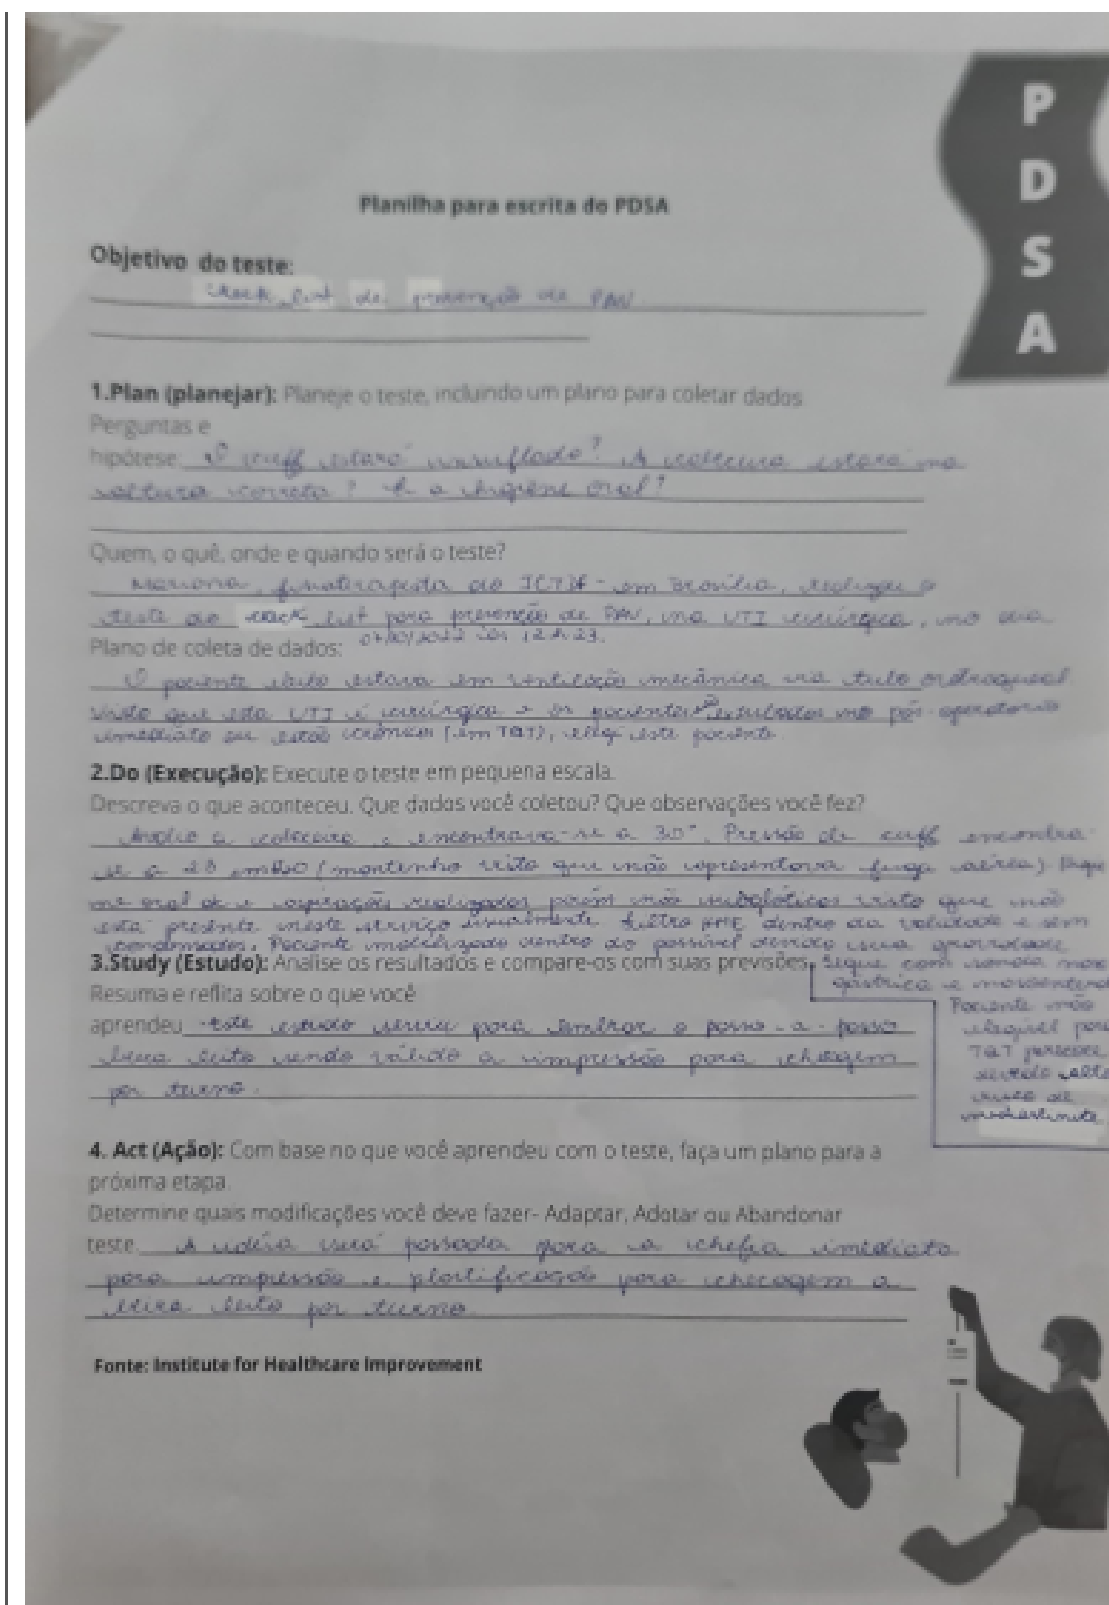 P
D
S
A
Planilha para escrita do PDSA
Objetivo do teste:
check list de prevenção de PAV
1.Plan (planejar): Planeje o teste, incluindo um plano para coletar dados.
Perguntas e
hipótese: O cuff estará insuflado? A cabeceira estará na
altura correta? E a higiene oral?
Quem, o quê, onde e quando será o teste?
Mariana, fisioterapeuta do ICTDF - em Brasília, realizou o
teste do check list para prevenção de PAV, na UTI cirúrgica, no dia
às 12h23.
Plano de coleta de dados:
O paciente eleito estava em ventilação mecânica via tubo orotraqueal.
Visto que esta UTI é cirúrgica e os pacientes no pós-operatório
imediato ou estão crônicos (em TQT), elegi este paciente.
2.Do (Execução): Execute o teste em pequena escala.
Descreva o que aconteceu. Que dados você coletou? Que observações você fez?
a cabeceira e encontrava-se a 30°. Pressão de cuff encontra-
se a 28 (mantenho visto que não apresentava fuga aérea). Higie
ne oral e aspirações realizadas porém não subglóticas visto que não
está presente neste serviço usualmente. Filtro HME dentro da validade e sem
condensados. Paciente mobilizado dentro do possível devido sua gravidade
3.Study (Estudo): Analise os resultados e compare-os com suas previsões.
Segue com sonda naso
gástrica e
Paciente não
elegível para
TQT precoce
devido alto
risco de
mediastinite
Resuma e reflita sobre o que você
aprendeu este estudo serviu para lembrar o passo-a-passo
beira leito sendo válido a impressão para checagem
por turno.
4. Act (Ação): Com base no que você aprendeu com o teste, faça um plano para a
próxima etapa.
Determine quais modificações você deve fazer- Adaptar, Adotar ou Abandonar
teste. A idéia será passada para a chefia imediata
para impressão e plastificação para checagem a
beira leito por turno.
Fonte: Institute for Healthcare Improvement